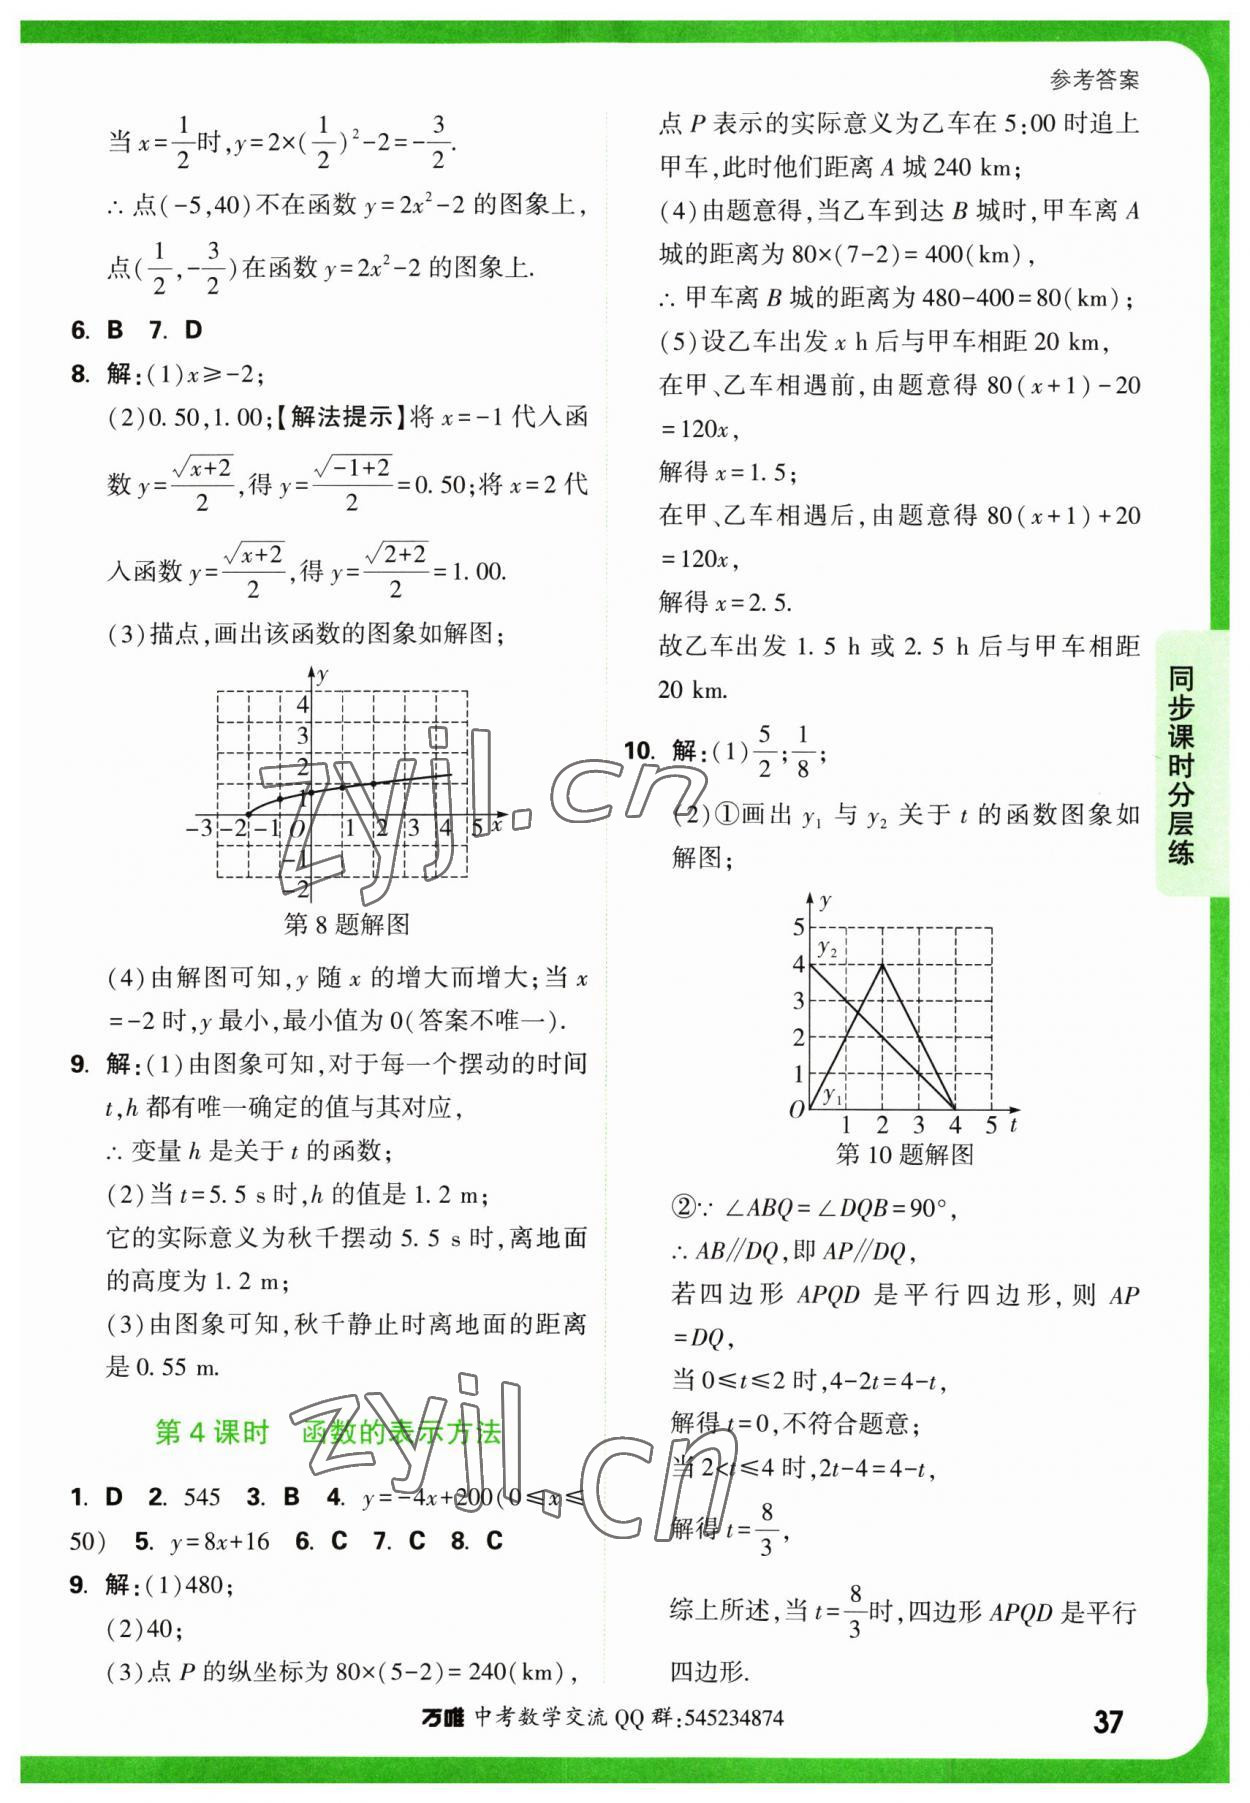 参考答案
当x=1/2时,y=2×(1/2)²-2=-3/2.
∴点(-5,40)不在函数y=2x²-2的图象上,
点(1/2,-3/2)在函数y=2x²-2的图象上.
6. B 7. D
8. 解:(1)x≥-2;
(2)0.50,1.00;【解法提示】将x=-1代入函
数y=√(x+2)/2,得y=√(-1+2)/2=0.50;将x=2代
入函数y=√(x+2)/2,得y=√(2+2)/2=1.00.
(3)描点,画出该函数的图象如解图;
y
4
3
2
1
-3 -2 -1 O 1 2 3 4 5 x
-1
-2
第8题解图
(4)由解图可知,y随x的增大而增大;当x
=-2时,y最小,最小值为0(答案不唯一).
9. 解:(1)由图象可知,对于每一个摆动的时间
t,h都有唯一确定的值与其对应,
∴变量h是关于t的函数;
(2)当t=5.5 s时,h的值是1.2 m;
它的实际意义为秋千摆动5.5 s时,离地面
的高度为1.2 m;
(3)由图象可知,秋千静止时离地面的距离
是0.55 m.
第4课时 函数的表示方法
1. D 2. 545 3. B 4. y=-4x+200(0≤x≤
50) 5. y=8x+16 6. C 7. C 8. C
9. 解:(1)480;
(2)40;
(3)点P的纵坐标为80×(5-2)=240(km),
点P表示的实际意义为乙车在5:00时追上
甲车,此时他们距离A城240 km;
(4)由题意得,当乙车到达B城时,甲车离A
城的距离为80×(7-2)=400(km),
∴甲车离B城的距离为480-400=80(km);
(5)设乙车出发x h后与甲车相距20 km,
在甲、乙车相遇前,由题意得80(x+1)-20
=120x,
解得x=1.5;
在甲、乙车相遇后,由题意得80(x+1)+20
=120x,
解得x=2.5.
故乙车出发1.5 h或2.5 h后与甲车相距
20 km.
10. 解:(1)5/2;1/8;
(2)①画出y₁与y₂关于t的函数图象如
解图;
y
5
4
3
2
1
y₂
y₁
O 1 2 3 4 5 t
第10题解图
②∵∠ABQ=∠DQB=90°,
∴AB∥DQ,即AP∥DQ,
若四边形APQD是平行四边形,则AP
=DQ,
当0≤t≤2时,4-2t=4-t,
解得t=0,不符合题意;
当2<t≤4时,2t-4=4-t,
解得t=8/3,
综上所述,当t=8/3时,四边形APQD是平行
四边形.
同步课时分层练
万唯 中考数学交流QQ群:545234874
37
zyjl.cn
zyjl.cn